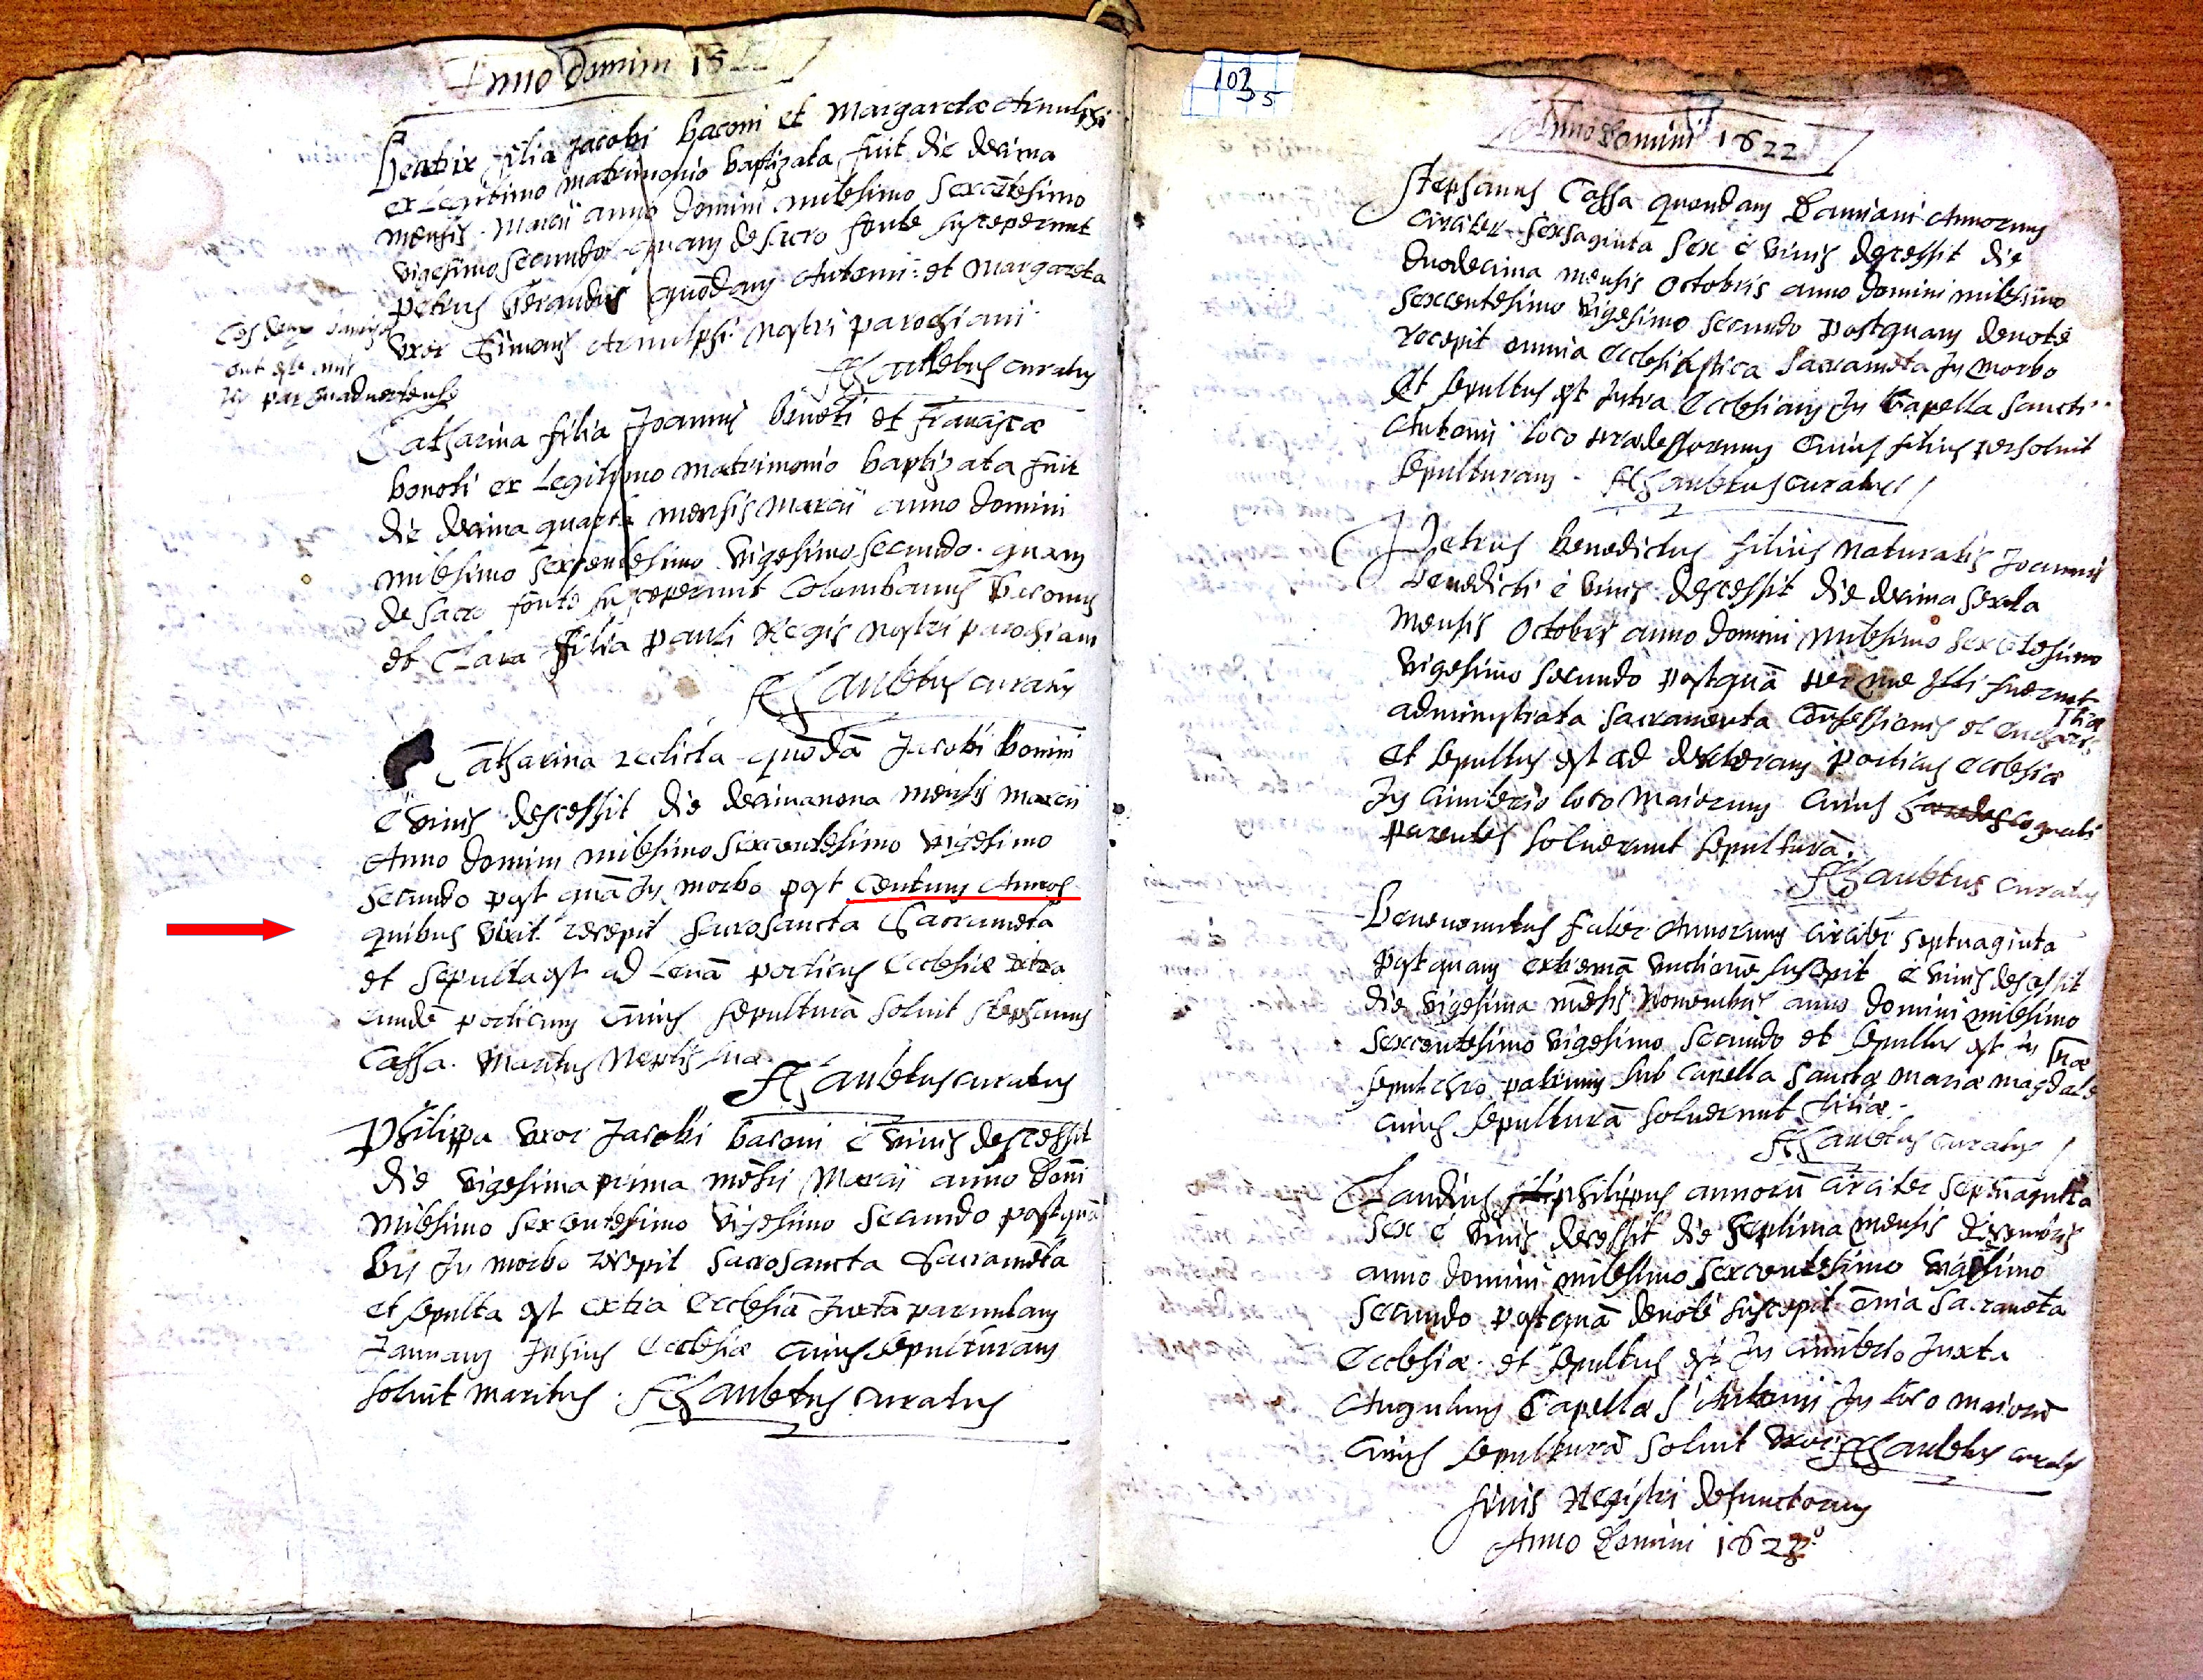 Anno Domini 16
Beatrix filia Jacobi Baconi et Margaretæ Arnulphi
ex Legitimo matrimonio baptizata fuit die decima
mensis Marcii anno Domini milesimo sexcētesimo
vigesimo secundo quam de sacro fonte susceperunt
petrus Gerandus quōdam Antonii et Margareta
vxor Simonis Arnulphi nostri parochiani
Aubetus curatus
Catharina filia Joannis Bonoti et Franciscæ
bonoti ex Legitimo matrimonio baptizata fuit
die decima quarta mensis Marcii anno domini
milesimo sexcentesimo vigesimo secundo quam
de sacro fonte susceperunt Colombanus Baconus
et Clara filia pauli Regis nostri parochiani
Aubetus curatus
Catharina relicta quōdā Jacobi Bonini
è vivis descessit die decimanona mensis marcii
Anno domini milesimo sexcentesimo vigesimo
secundo post quā in morbo post centum Annos
quibus vixit recepit sacrosancta Sacramēta
et sepulta est ad Levā porticus Ecclesiæ extra
eundē porticum cuius sepulturā soluit stephanus
Cassa maritus Neptis suæ
Aubetus curatus
Philippa vxor Jacobi baconi è vivis descessit
die vigesima prima mēsis Marcii anno Domī
milesimo sexcentesimo vigesimo secundo postquā
bis in morbo recepit sacrosancta Sacramēta
et sepulta est extra Ecclesiā juxta paruulam
Januam ipsius Ecclesiæ cuius sepulturam
soluit maritus. Aubetus curatus
103
5
Anno Domini 1622
Stephanus Cassa quondam Damiani Annorum
circiter sexsaginta sex è vivis decessit die
duodecima mensis Octobris anno domini milesimo
sexcentesimo vigesimo secundo postquam devotè
recepit omnia Ecclesiastica Sacramēta in morbo
et sepultus est intra Ecclesiam in Capella sancti
Antonii loco prædessorum cuius filius persoluit
sepulturam. Aubetus curatus
Petrus Benedictus filius naturalis Joannis
Benedicti è vivis descessit die decima sexta
mensis Octobris anno domini milesimo sexcētesimo
vigesimo secundo postquā per me illi fuerunt
administrata sacramenta Confessionis et Eucharistiæ
et sepultus est ad dexteram porticus ecclesiæ
in cimiterio loco maiorum cuius hæredes cognati
parentes soluerunt sepulturā.
Aubetus curatus
Benevenutus faber Annorum circiter septuaginta
postquam extremā vnctionē suscepit è vivis decessit
die vigesima mēsis Novembris anno domini milesimo
sexcentesimo vigesimo secundo et sepultus est in
sepulchro patrum sub capella sanctæ mariæ magdalenæ
cuius sepulturā soluerunt filiæ.
Aubetus curatus
Claudius philippus annorū circiter septuaginta
sex è vivis decessit die septima mensis decembris
anno domini milesimo sexcentesimo vigesimo
secundo postquā devotè suscepit omīa sacramēta
Ecclesiæ et sepultus est in cimiterio juxta
Angulum Capellæ S Antonii in loco maiorū
cuius sepulturā soluit vxor Aubetus curatus
finis Registri defunctorum
Anno Domini 1622º